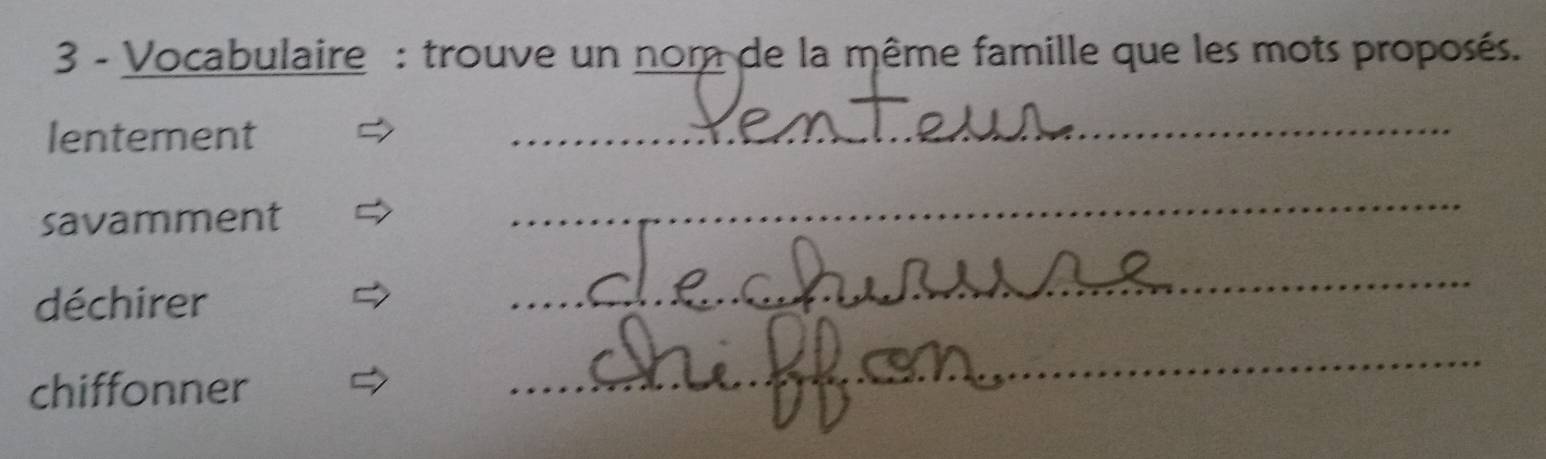 3 - Vocabulaire : trouve un nom de la même famille que les mots proposés.
lentement ⇨ lenteur
savamment ⇨
déchirer ⇨ dechirure
chiffonner ⇨ chiffon